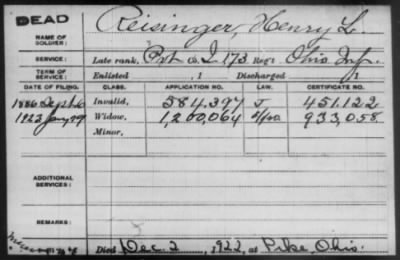 DEAD
NAME OF SOLDIER: Reisinger, Henry L.
SERVICE: Late rank, Pvt Co. I, 173 Reg't Ohio Inf.
TERM OF SERVICE: Enlisted , 1 Discharged , 1
DATE OF FILING. CLASS. APPLICATION NO. LAW. CERTIFICATE NO.
1886 Sept 6 Invalid, 584,397 J 451,122
1923 Jany 29 Widow, 1,200,064 933,058
Minor,
ADDITIONAL SERVICES:
REMARKS:
Died Dec. 2, 1922, at Pike, Ohio.